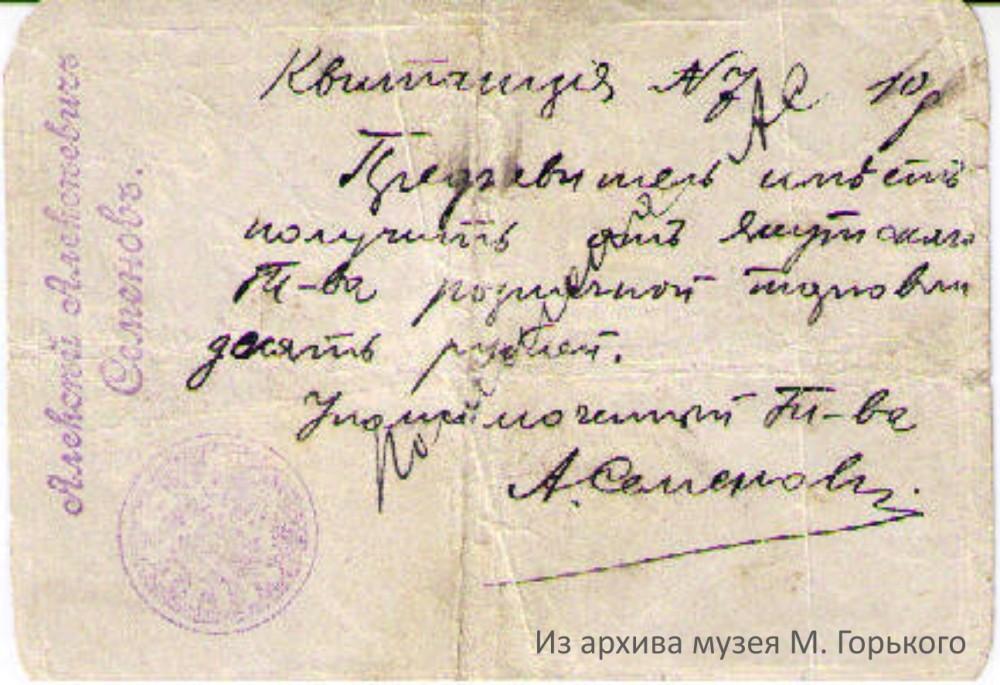 Алексей Алексеевичъ
Семеновъ.
Квитанція N 7 10р
Предъявитель имѣетъ
получить отъ Якутскаго
Т-ва розничной торговли
десять рублей.
Уполномоченный Т-ва
А. Семеновъ.
Из архива музея М. Горького